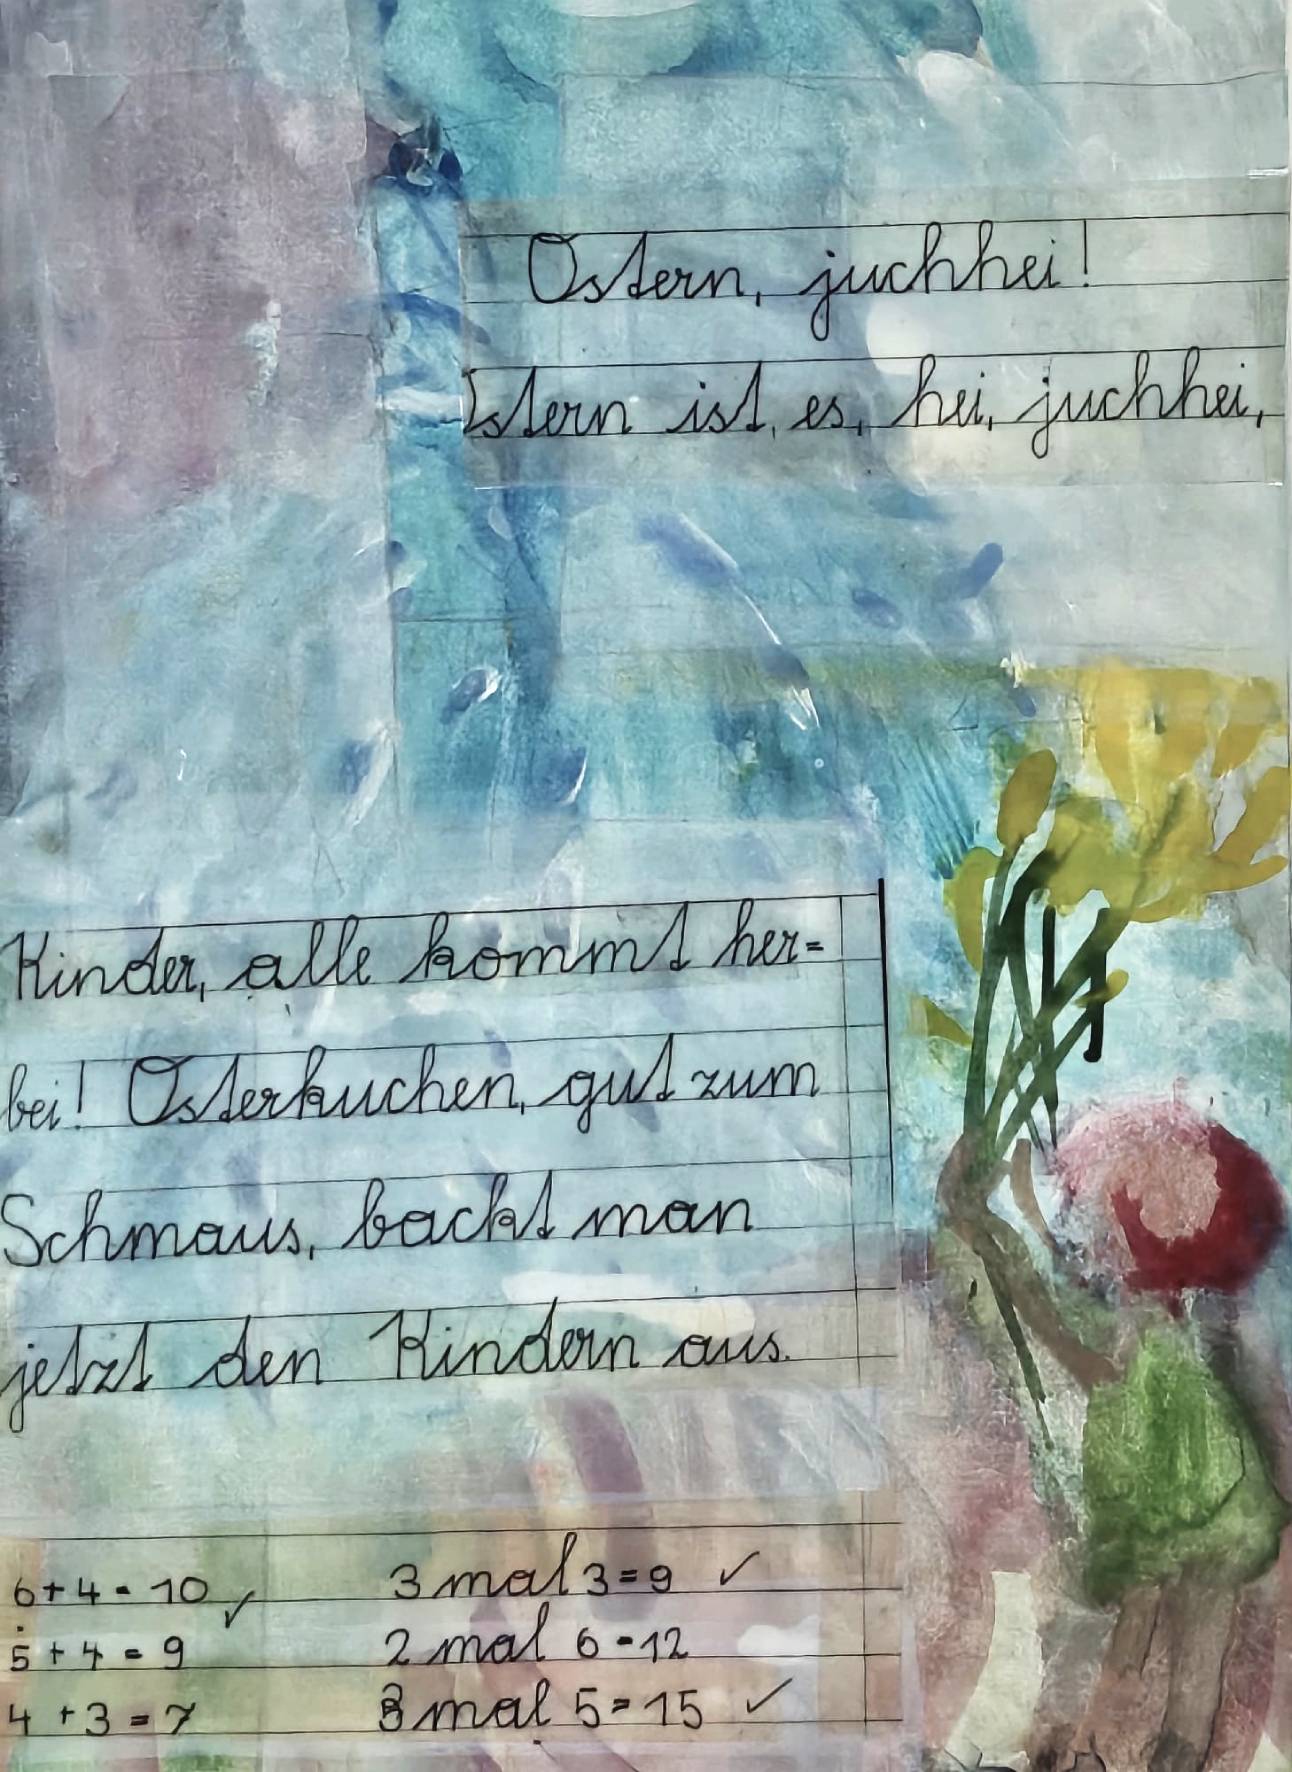 Ostern, juchhei!
stern ist, es, hei, juchhei,
Kinder, alle kommt her=
bei! Osterkuchen, gut zum
Schmaus, backt man
jetzt den Kindern aus.
6+4=10 ✓ 3 mal 3=9 ✓
5+4=9 2 mal 6=12
4+3=7 3 mal 5=15 ✓